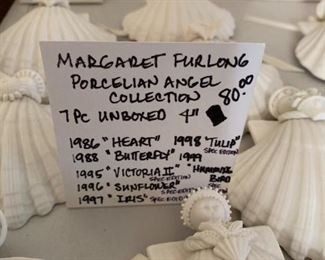 MARGARET FURLONG
PORCELIAN ANGEL
COLLECTION 80.00
7 PC UNBOXED 4"
1986 "HEART" 1998 "TULIP"
SPEC EDITION
1988 "BUTTERFLY" 1999
1995 "VICTORIA II" "HUMMING
SPEC EDITION BIRD
1996 "SUNFLOWER" SPEC
SPEC EDITION
1997 "IRIS" SPEC EDITION